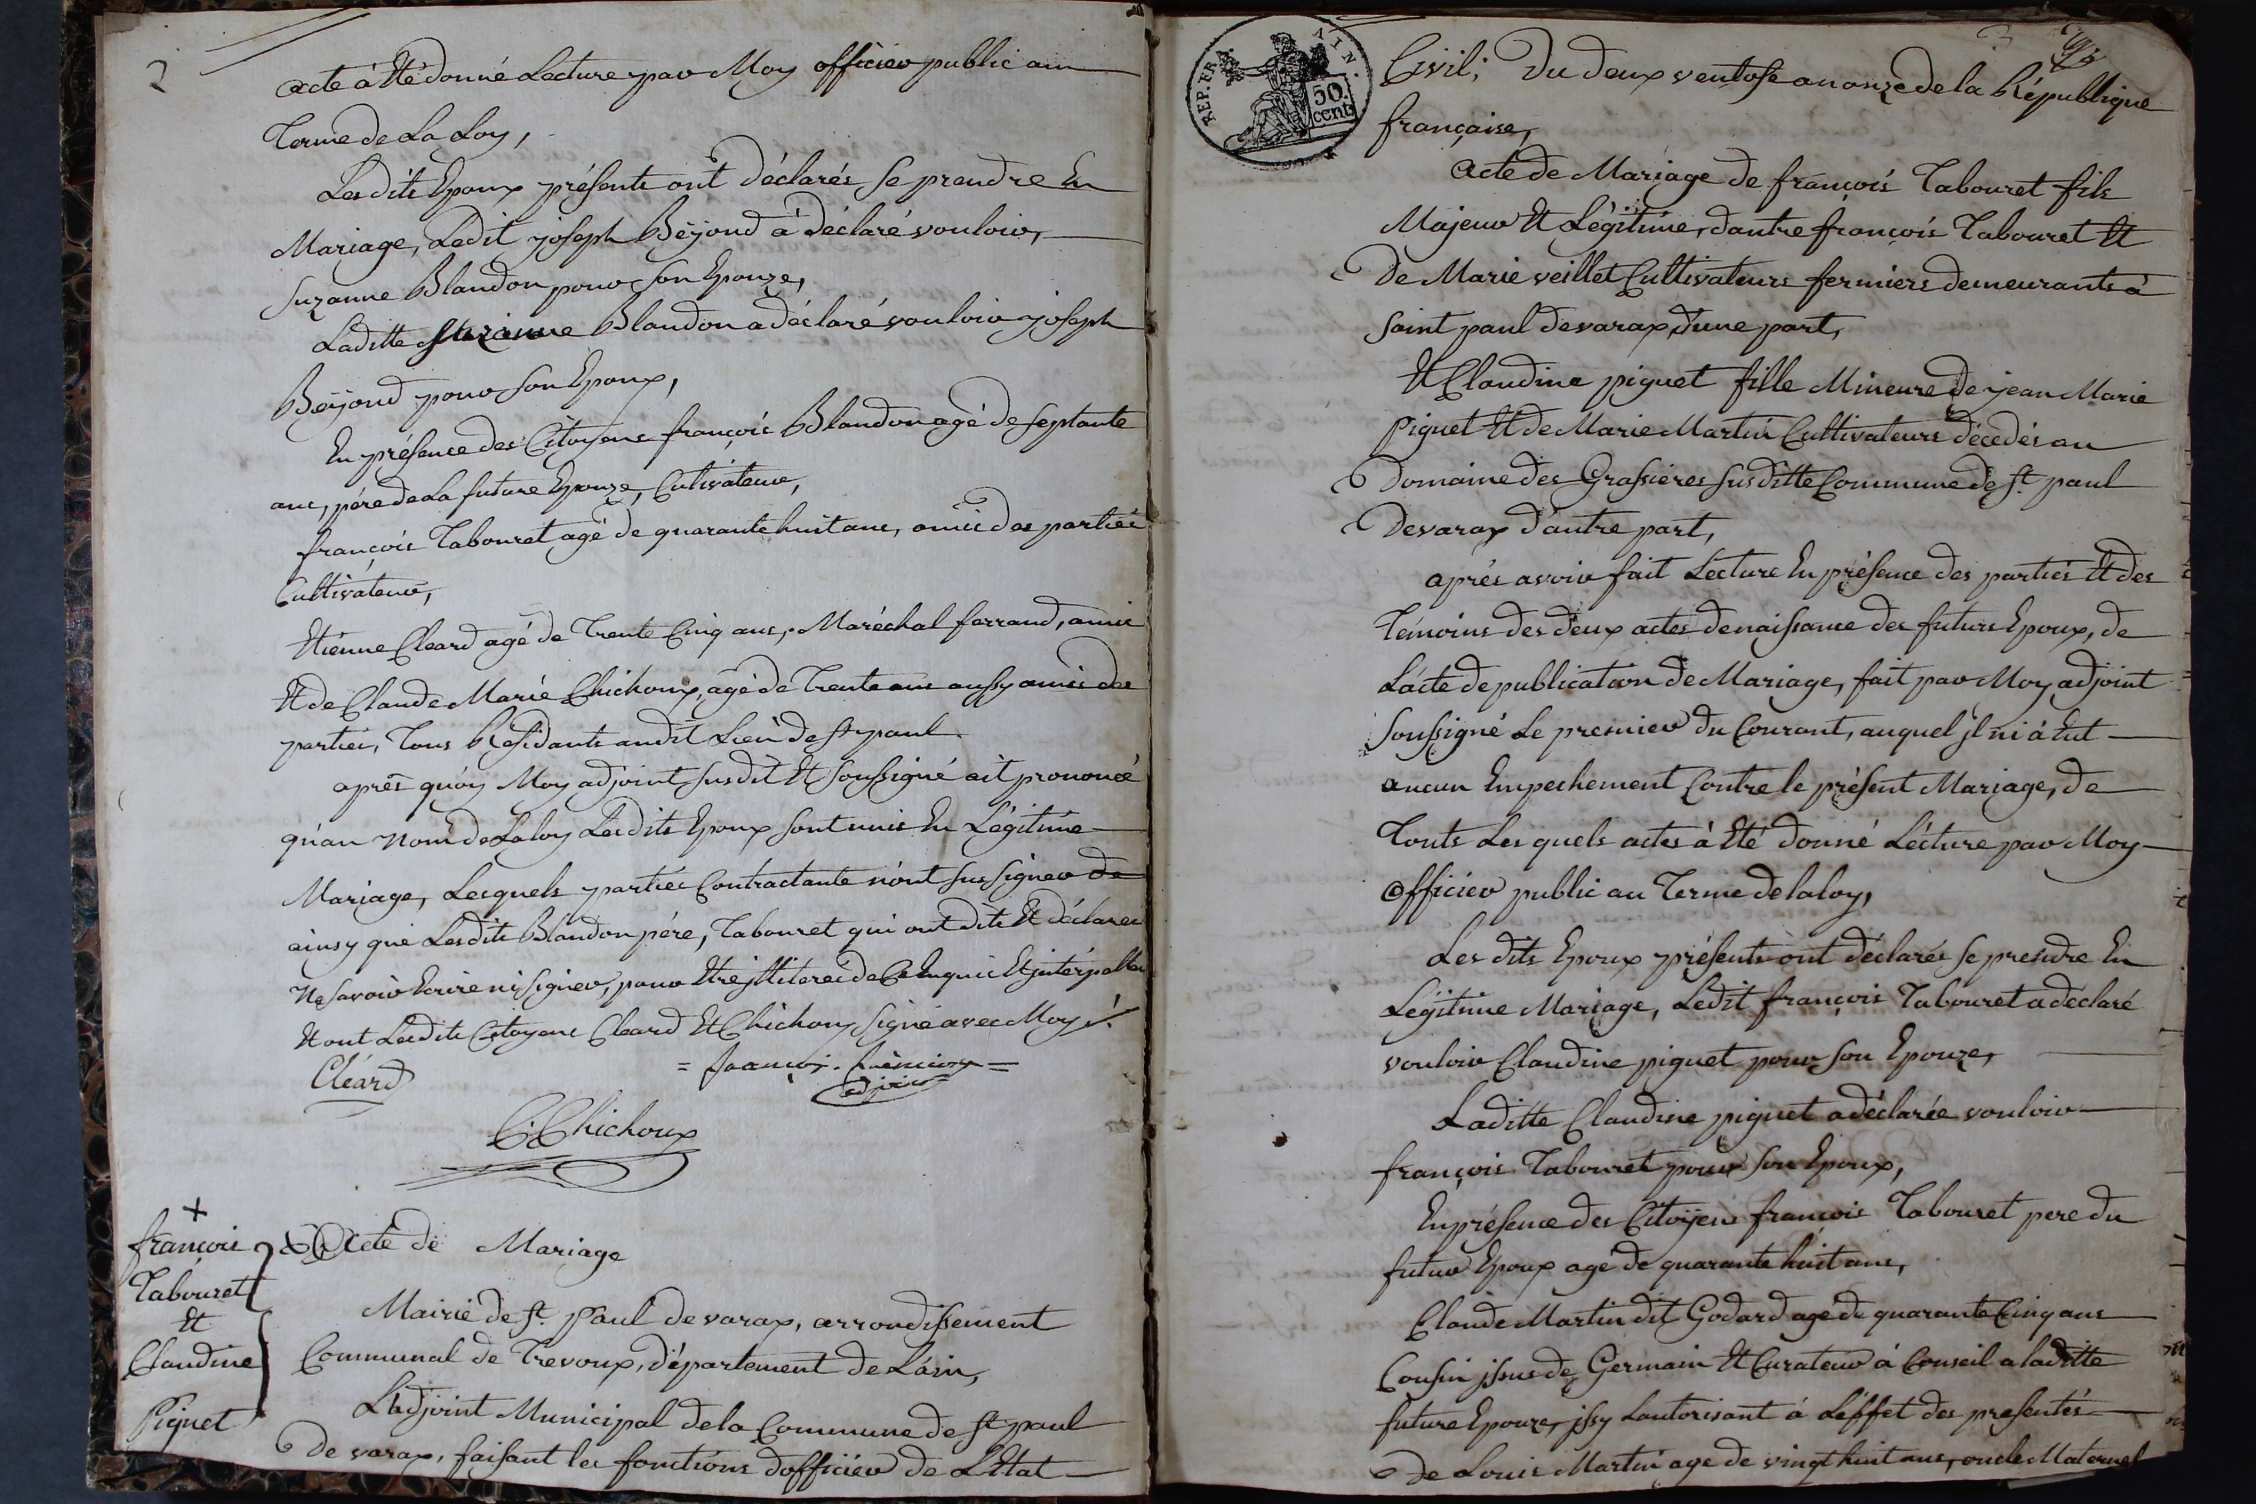 2
acte à Eté donné Lecture par Moy officier public au
Terme de La Loy,
Les dits Epoux présents ont déclarés se prendre En
Mariage, Ledit joseph Béyond à déclaré vouloir,
suzanne Blandon pour son Epouze,
Laditte suzanne Blandon a déclaré vouloir joseph
Béyond pour son Epoux,
En présence des Citoyens françois Blandon agé de septante
ans, pére de La future Epouze, Cultivateur,
françois Tabouret agé de quarante huit ans, amis des parties
Cultivateur,
Etiénne Cleard agé de Trente Cinq ans, Maréchal ferrand, amis
Et de Claude Marie Chichoux, agé de Trente ans aussy amis des
parties, Tous Residants audit Lieu de st paul.
aprés quoy Moy adjoint susdit Et soussigné ait prononcé
qu'au nom de La loy Lesdits Epoux sont unis En Légitime
Mariage, Lesquels parties Contractante n'ont sus signer de
ainsy que Lesdits Blandon pére, Tabouret qui ont dits Et déclarer
Ne savoir Ecrire ni signer, pour Etre jlliterés de Ce Enquis Et jnterpellés
Et ont Lesdits Citoyens Cleard Et Chichoux signé avec Moy
Cléard
= françois =
adjoint
C. Chichoux
françois
Tabouret
Et
Claudine
Piguet
Acte de Mariage
Mairie de st. Paul de varax, arrondissement
Communal de Trevoux, département de L'ain,
L'adjoint Municipal de la Commune de st paul
de varax, faisant les fonctions d'officier de L'Etat
REP. FRA.
AIN.
50.
cent.
Civil; Du deux ventose an onze de la République
française,
acte de Mariage de françois Tabouret fils
Majeur Et Légitime, d'autre françois Tabouret Et
de Marie veillet Cultivateurs fermiers demeurants à
saint paul devarax, d'une part,
Et Claudine piguet fille Mineure de jean Marie
Piguet Et de Marie Martin Cultivateurs décedés au
Domaine des Grassieres susditte Commune de st. paul
Devarax d'autre part,
aprés avoir fait Lecture En présence des parties Et des
Témoins des deux actes de naissance des futurs Epoux, de
L'acte de publication de Mariage, fait par Moy adjoint
soussigné Le premier du Courant, auquel jl ni à Eut
aucun Empechement Contre le présent Mariage, de
Touts Les quels actes à Eté donné Lécture par Moy
officier public au Terme de la loy,
Les dits Epoux présents ont déclarés se prendre En
Légitime Mariage, Ledit françois Tabouret a déclaré
vouloir Claudine piguet pour son Epouze,
Laditte Claudine piguet a déclarée vouloir
françois Tabouret pour son Epoux,
En présence des Citoyens françois Tabouret pere du
futur Epoux agé de quarante huit ans,
Claude Martin dit Godard age de quarante Cinq ans
Cousin jssus de Germain Et Curateur à Conseil a laditte
future Epouze, jssy L'autorisant á L'éffet des presentés
de Louis Martin age de vingt huit ans, oncle Maternel